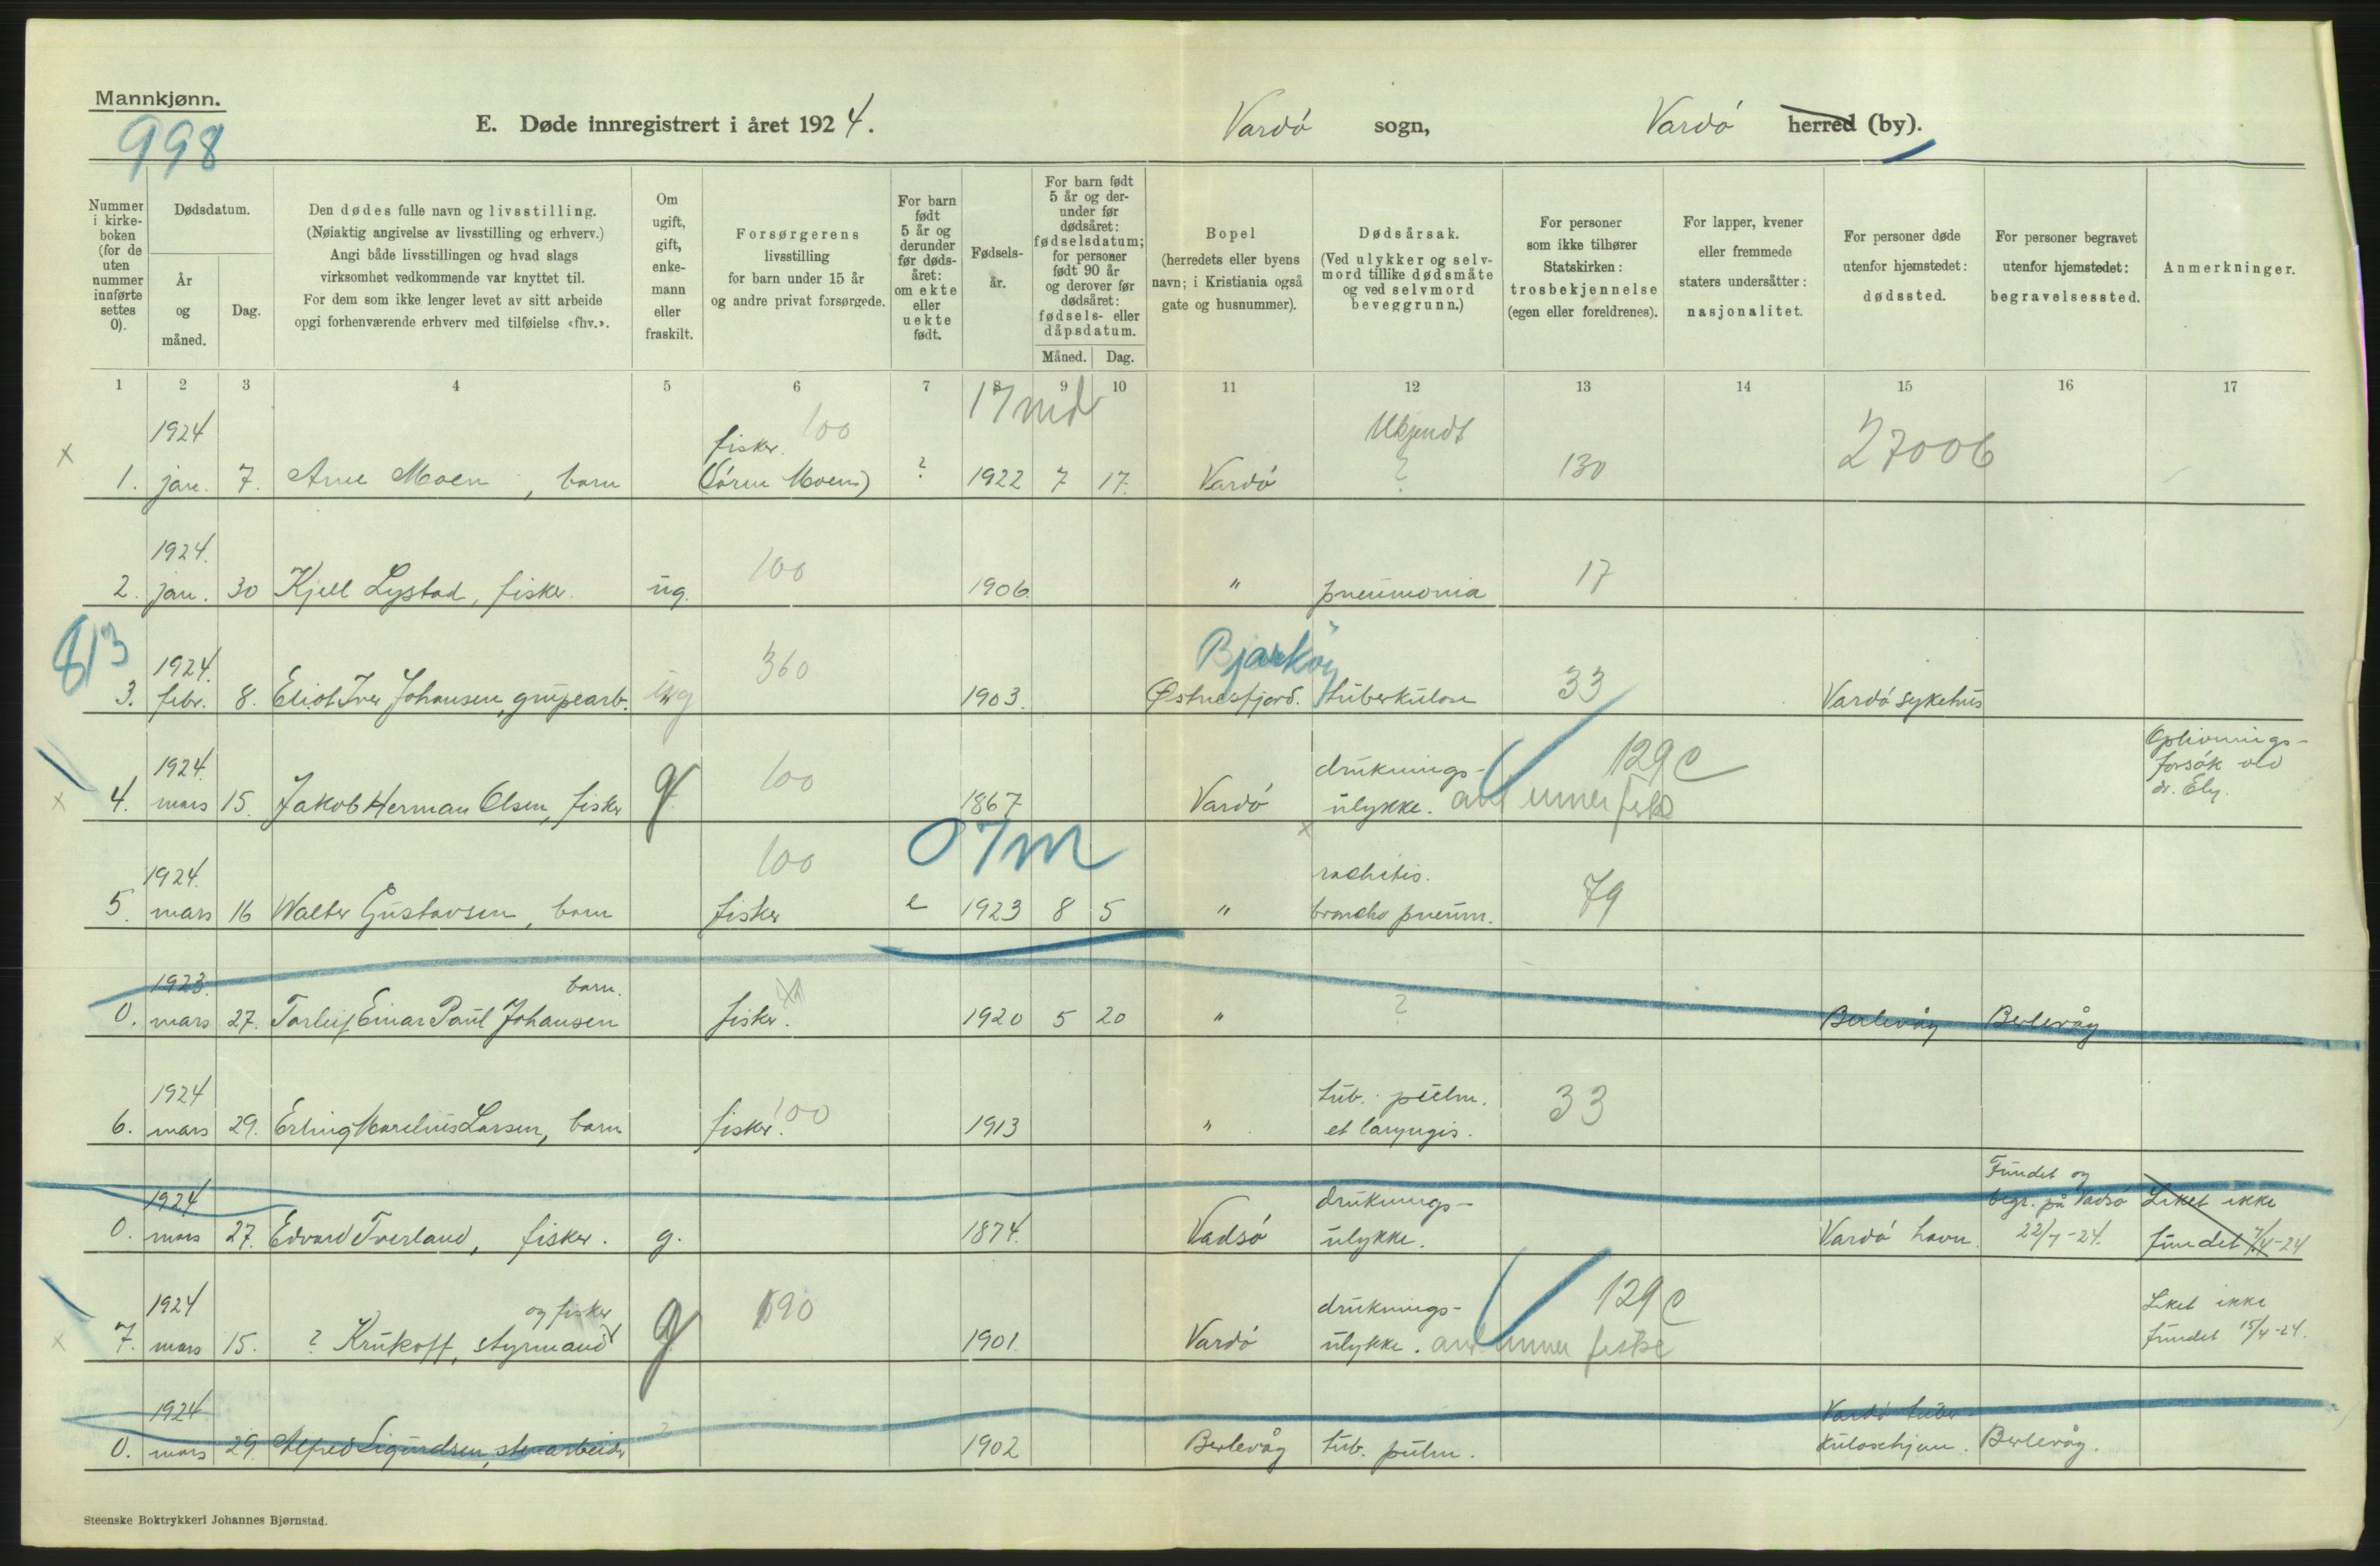 Mannkjønn.
998
E. Døde innregistrert i året 1924.
Vardö sogn,
Vardö herred (by).
Nummer i kirke-boken (for de uten nummer innførte settes 0).
Dødsdatum.
År og måned.
Dag.
Den dødes fulle navn og livsstilling.
(Nøiaktig angivelse av livsstilling og erhverv.)
Angi både livsstillingen og hvad slags
virksomhet vedkommende var knyttet til.
For dem som ikke lenger levet av sitt arbeide
opgi forhenværende erhverv med tilføielse «fhv.».
Om ugift, gift, enke-mann eller fraskilt.
Forsørgerens livsstilling
for barn under 15 år
og andre privat forsørgede.
For barn født 5 år og derunder før døds-året: om ekte eller uekte født.
Fødsels-år.
For barn født 5 år og der-under før dødsåret: fødselsdatum; for personer født 90 år og derover før dødsåret: fødsels- eller dåpsdatum.
Måned. Dag.
Bopel
(herredets eller byens
navn; i Kristiania også
gate og husnummer).
Dødsårsak.
(Ved ulykker og selv-
mord tillike dødsmåte
og ved selvmord
beveggrunn.)
For personer
som ikke tilhører
Statskirken:
trosbekjennelse
(egen eller foreldrenes).
For lapper, kvener
eller fremmede
staters undersåtter:
nasjonalitet.
For personer døde
utenfor hjemstedet:
dødssted.
For personer begravet
utenfor hjemstedet:
begravelsessted.
Anmerkninger.
1 2 3 4 5 6 7 8 9 10 11 12 13 14 15 16 17
17 md
1924 fisker. 100 Ukjendt 27006
x 1. jan. 7. Arne Moen, barn (Sören Moen) ? 1922 7 17. Vardö ? 130
1924. 100
2. jan. 30 Kjell Lystad, fisker. ug. 1906 " pneumonia 17
813
1924. 360 Bjarköy
3. febr. 8. Eliot Iver Johansen, grupearb. ug 1903. Østnesfjord. tuberkulose 33 Vardö sykehus
1924. 100 druknings- 129c Oplivnings-
forsök ved
dr. Ely.
x 4. mars 15. Jakob Herman Olsen, fisker g 1867 Vardö ulykke.
07m
1924. 100 rachitis.
5. mars 16 Walter Gustavsen, barn fisker e 1923 8 5 " broncho pneum. 79
1923. barn.
0. mars 27. Torleif Einar Paul Johansen fisker. 1920 5 20 " ? Berlevåg Berlevåg
1924 tub. pulm.
6. mars 29. Erling Marelius Larsen, barn fisker. 100 1913 " et laryngis. 33
1924 druknings- Fundet og
begr. på Vadsö Liket ikke
0. mars 27. Edvard Tverland, fisker. g. 1874. Vadsö ulykke. Vardö havn. 22/7-24. fundet 7/4-24
1924 og fisker 690 druknings- 129c Liket ikke
x 7. mars 15. ? Krukoff, styrmand g 1901. Vardö ulykke. fundet 15/4-24.
1924 Vardö tuber-
0. mars 29. Alfred Sigurdsen, stenarbeider ? 1902 Berlevåg tub. pulm. kulosehjem. Berlevåg.
Steenske Boktrykkeri Johannes Bjørnstad.